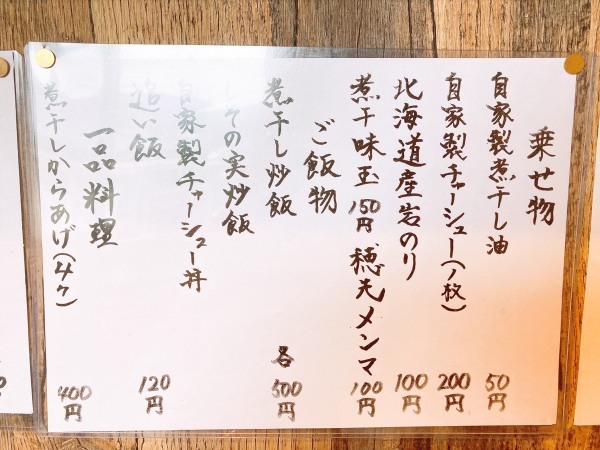 乗せ物
自家製煮干し油 50円
自家製チャーシュー(1枚) 200円
北海道産岩のり 100円
煮干味玉 150円 穂先メンマ 100円
ご飯物
煮干し炒飯 各500円
しその実炒飯
自家製チャーシュー丼
追い飯 120円
一品料理
煮干しからあげ(4ヶ) 400円